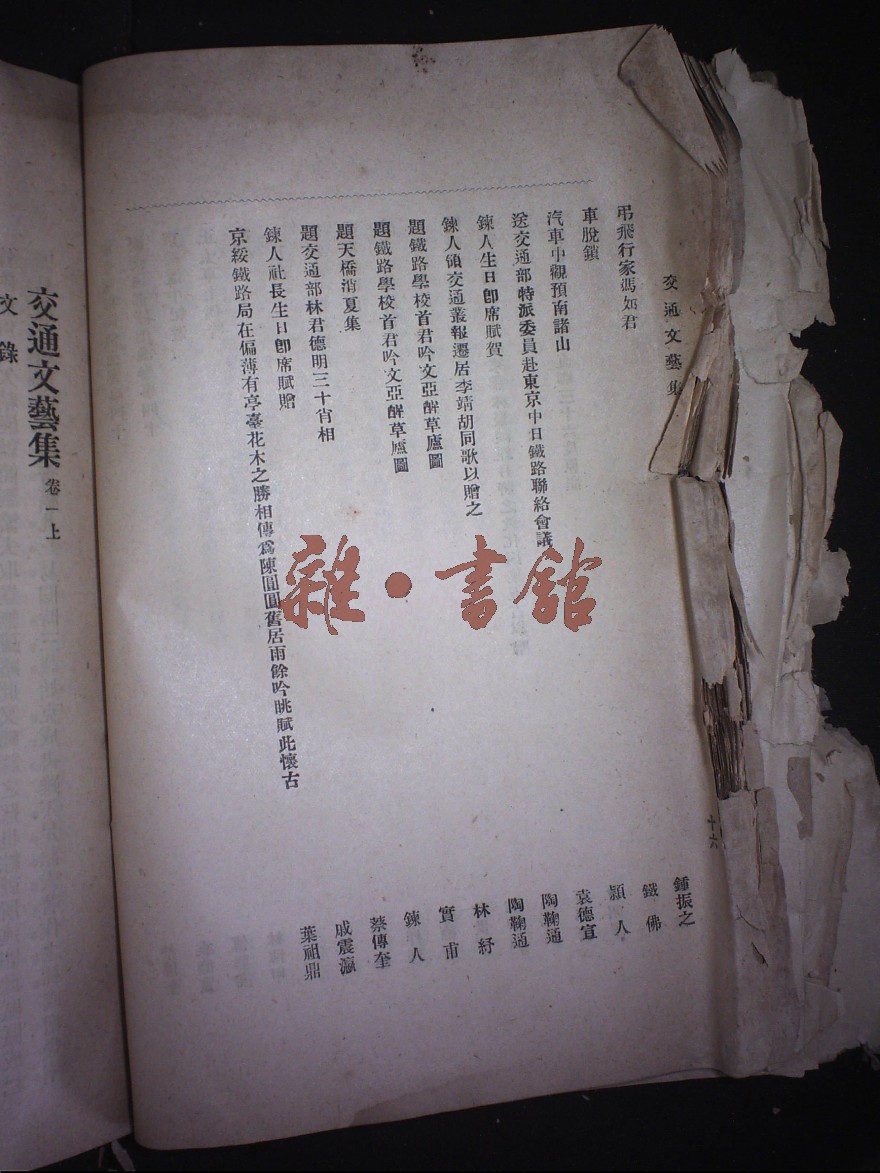 交通文藝集 十六
弔飛行家馮如君 鍾振之
車脫鎖 鐵佛
汽車中觀預南諸山 頴人
送交通部特派委員赴東京中日鐵路聯絡會議 袁德宣
鍊人生日卽席賦賀 陶鞠通
鍊人領交通叢報遷居李靖胡同歌以贈之 陶鞠通
題鐵路學校首君吟文亞醉草廬圖 林紓
題鐵路學校首君吟文亞醉草廬圖 實甫
題天橋消夏集 鍊人
題交通部林君德明三十肖相 蔡傳奎
鍊人社長生日卽席賦贈 戚震瀛
京綏鐵路局在偏薄有亭臺花木之勝相傳爲陳圓圓舊居雨餘吟眺賦此懷古 葉祖鼎
交通文藝集 卷一上
文錄
雜·書館